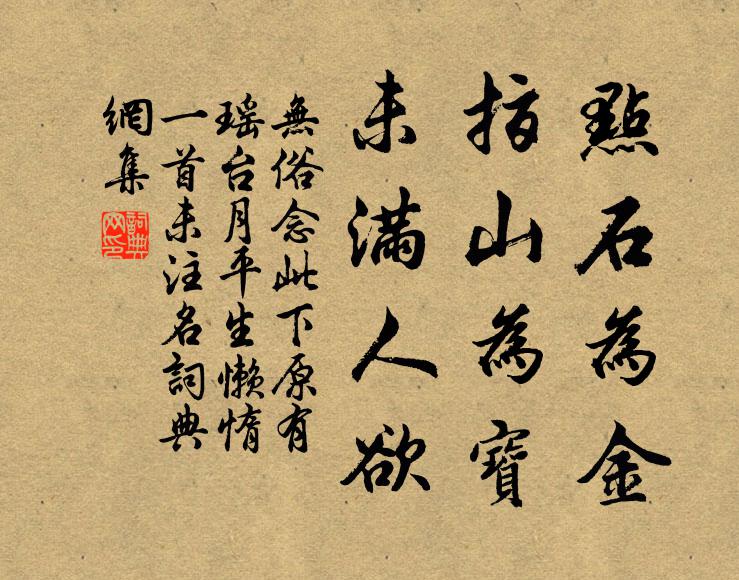 點石為金
指山為寶
未滿人欲
無俗念此下原有
瑶台月平生懒惰
一首未注名詞典
網集
詞典
网印